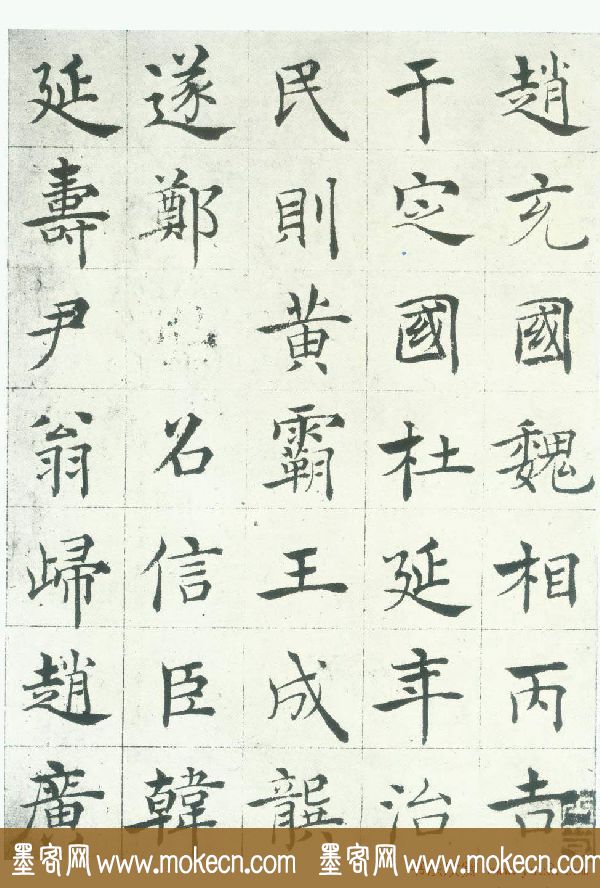 趙充國魏相丙吉
于定國杜延年治
民則黃霸王成龔
遂鄭召信臣韓
延壽尹翁歸趙廣
墨客网 www.mokecn.com 墨客网 www.mokecn.com